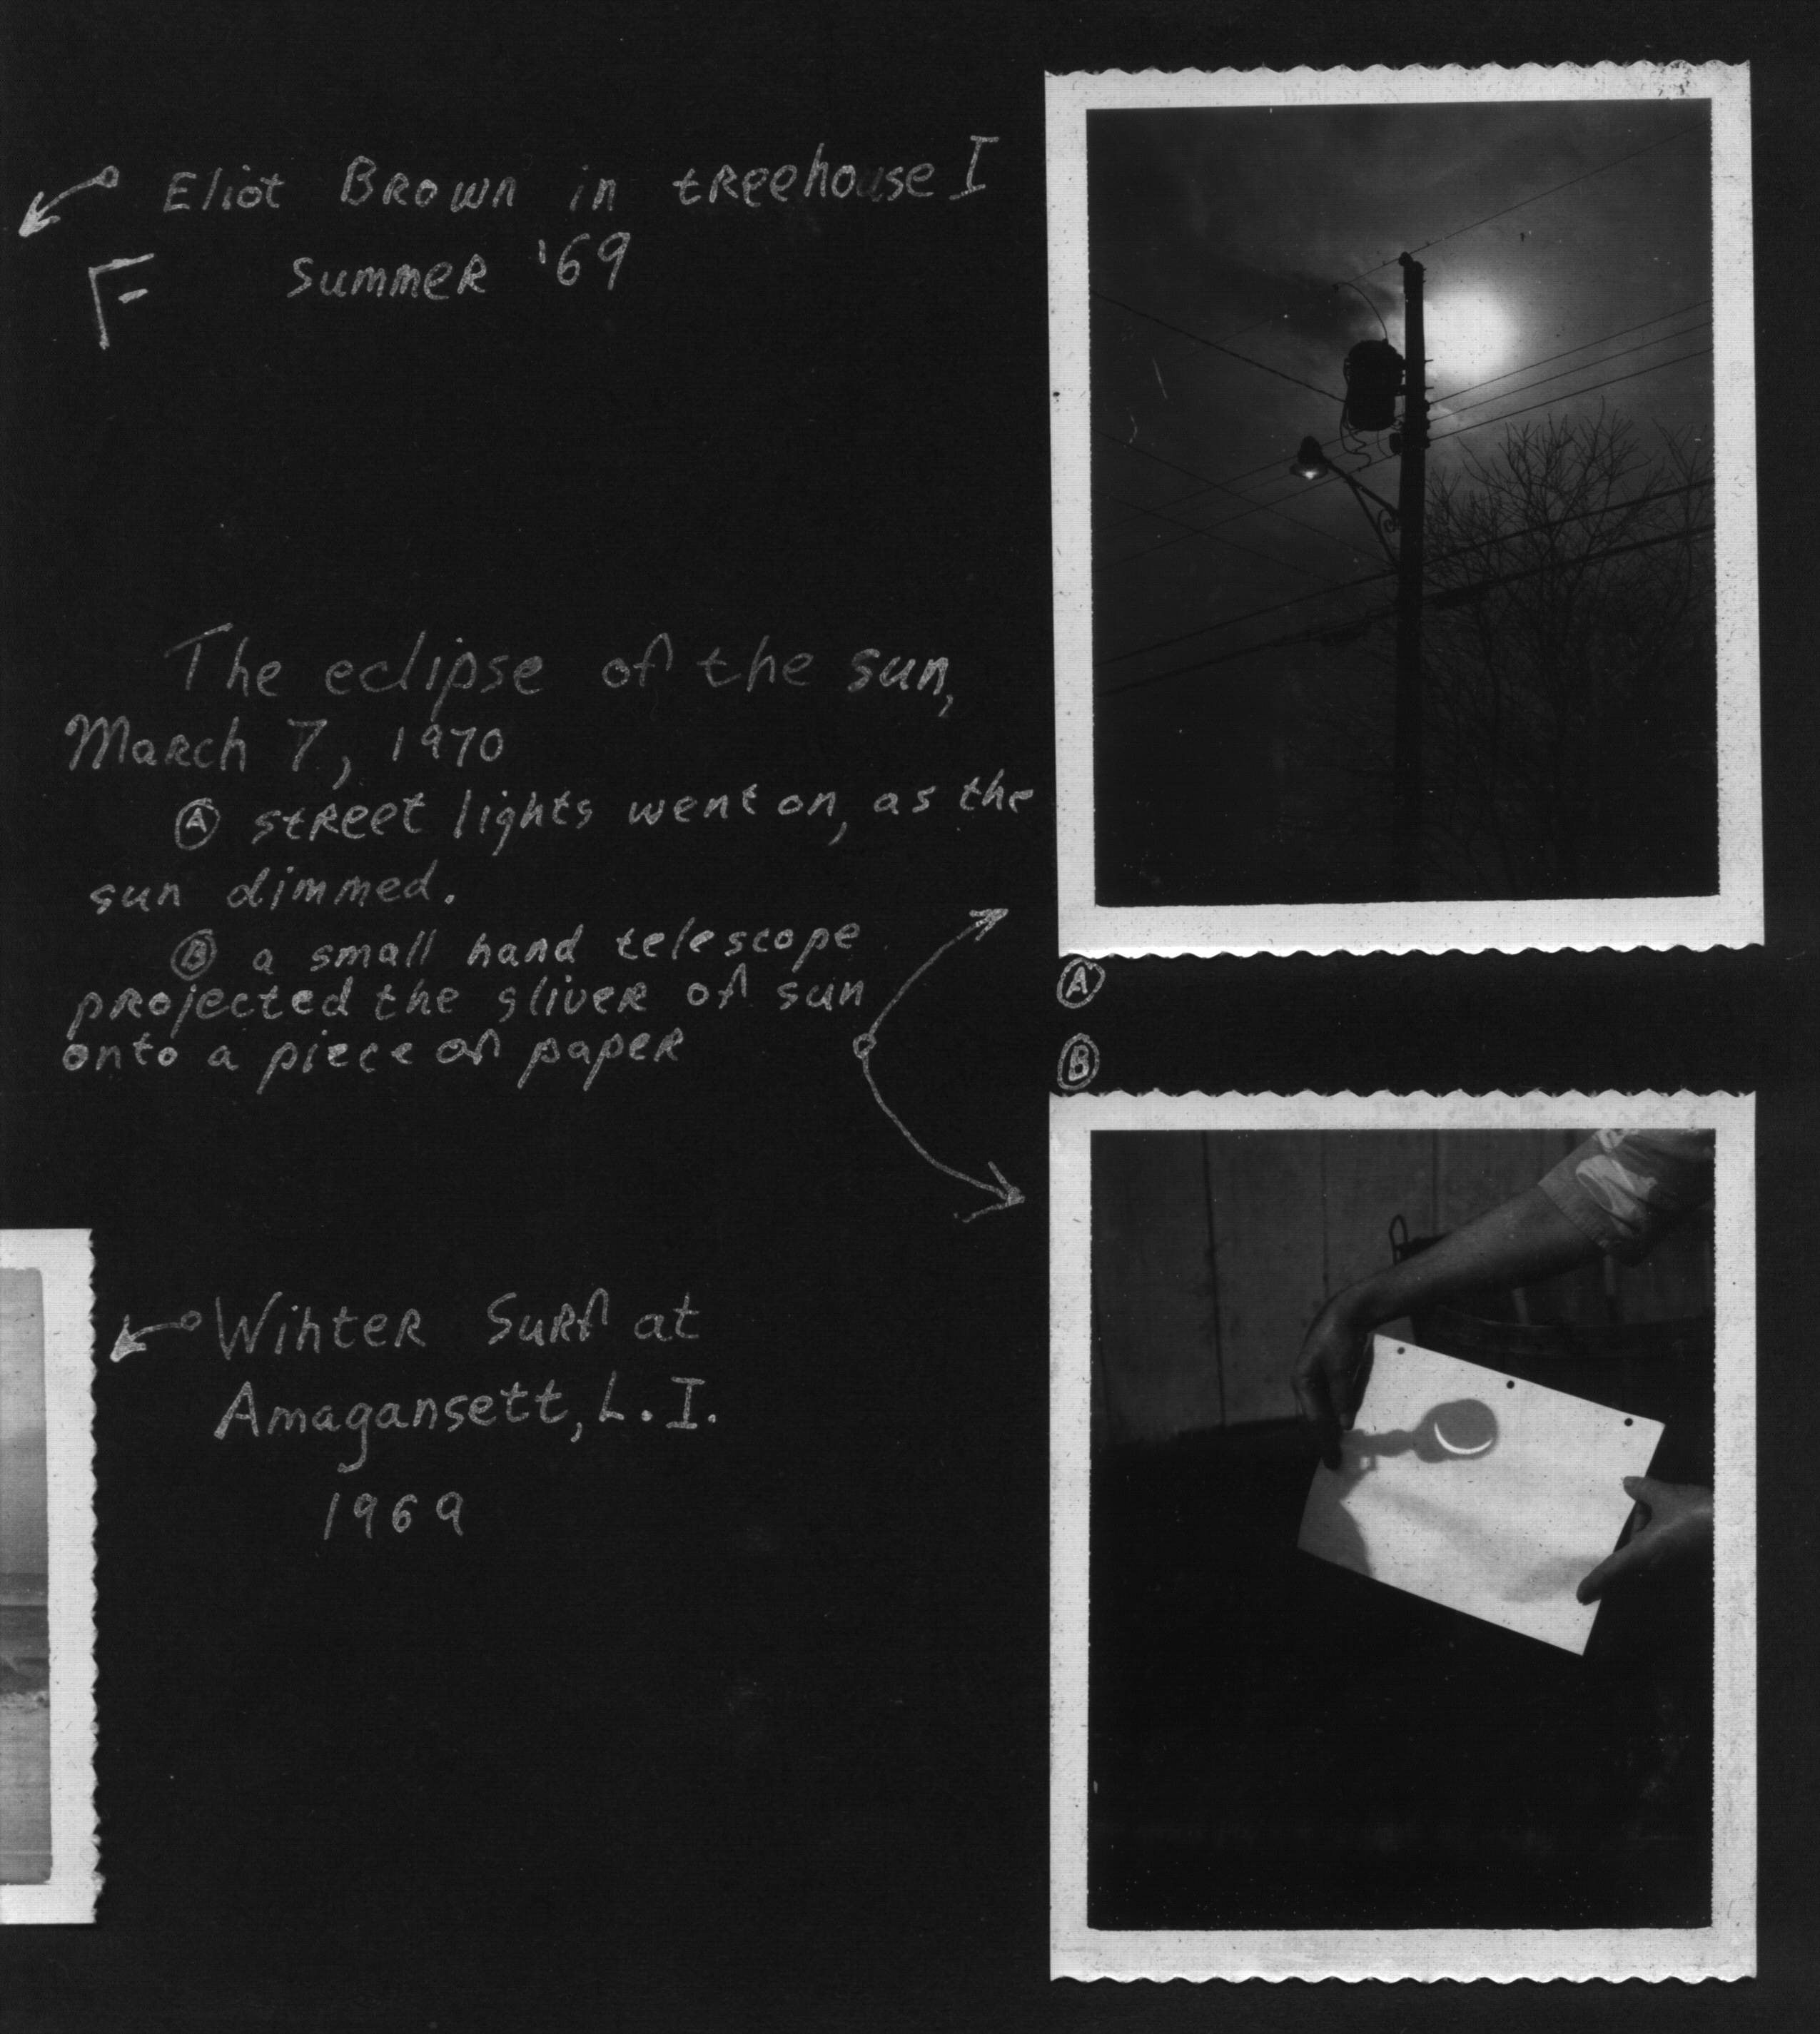 Eliot Brown in treehouse I
F Summer '69
The eclipse of the sun,
March 7, 1970
A street lights went on, as the
sun dimmed.
B a small hand telescope
projected the sliver of sun
onto a piece of paper
A
B
Winter Surf at
Amagansett, L.I.
1969